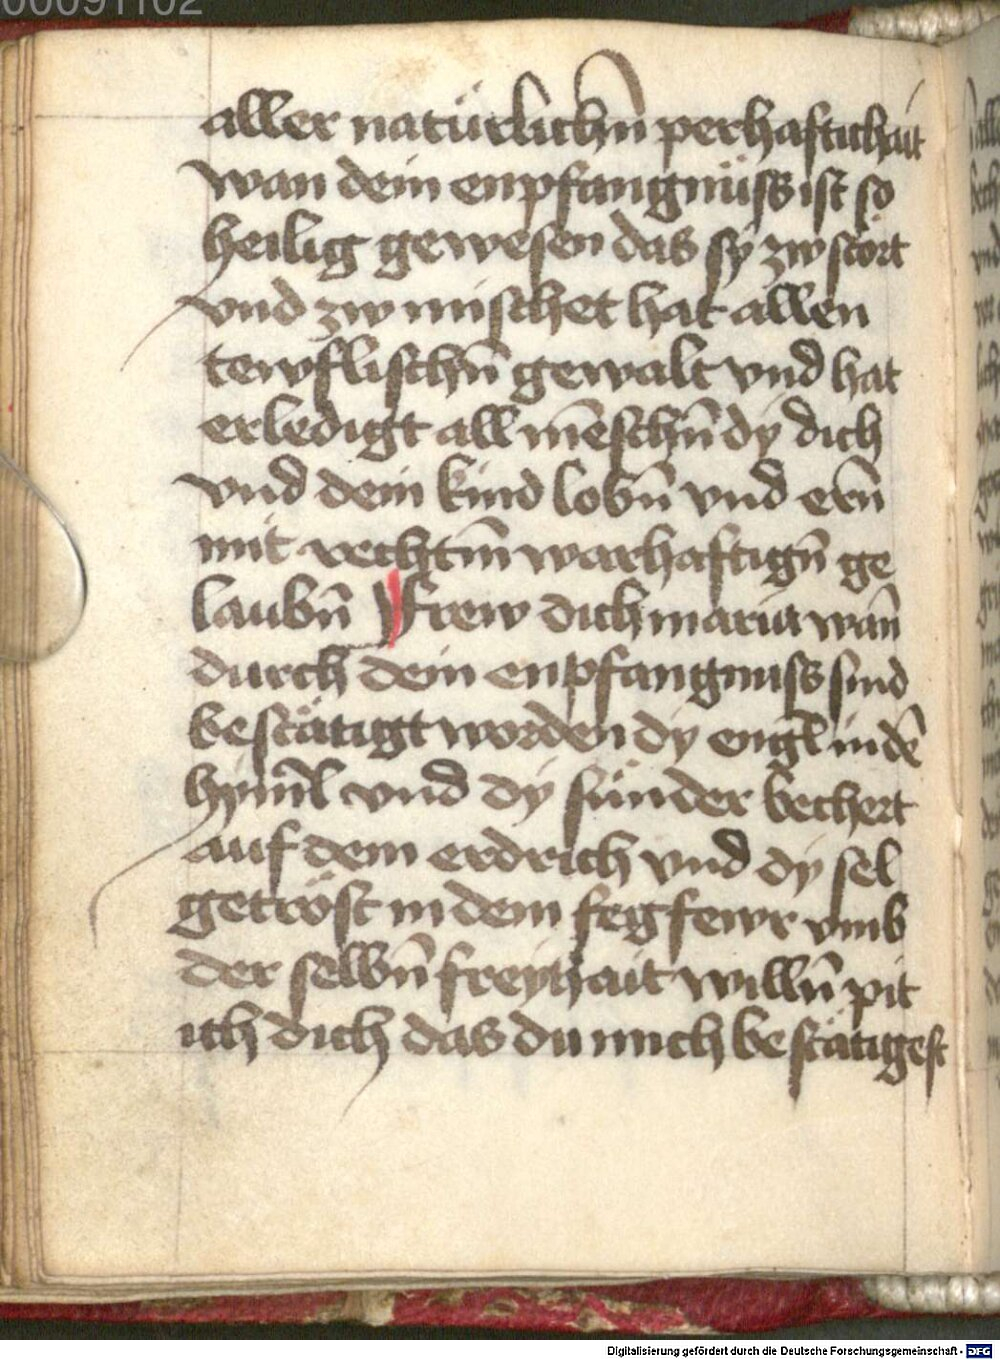 00091102
aller natürlichn̄ perhaftichait
wan dein enpfangnüss ist so
heilig gewesen das sÿ zw stört
vnd zw mischet hat allen
tewflischn̄ gewalt vnd hat
erledigt all mēschn̄ dÿ dich
vnd dein kind lobn̄ vnd ern̄
mit rechtm̄ warhaftign̄ ge
laubn̄ Frew dich maria wan̄
durch dein enpfangnuss sind
bestätigt worden dÿ engl̄ in dē
hÿml̄ vnd dÿ sünder bechert
auf dem erdrich vnd dÿ sel
getröst in dem fegfewr vmb
der selbn̄ freÿhait willn̄ pit
ich dich das du mich bestätigest
Digitalisierung gefördert durch die Deutsche Forschungsgemeinschaft - DFG